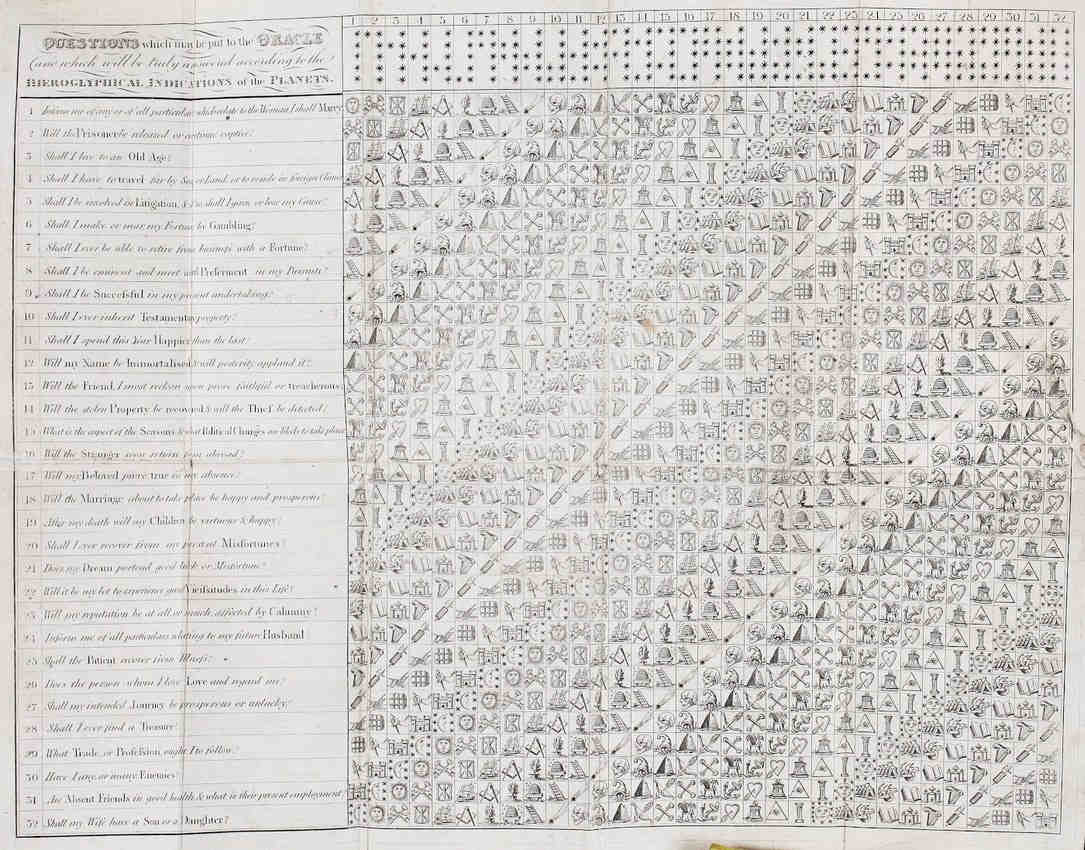 1 2 3 4 5 6 7 8 9 10 11 12 13 14 15 16 17 18 19 20 21 22 23 24 25 26 27 28 29 30 31 32
QUESTIONS which may be put to the ORACLE
and which will be truly answered according to the
HIEROGLYPHICAL INDICATIONS of the PLANETS.
1 Inform me of any or of all particulars which relate to the Woman I shall Marry
2 Will the Prisoner be released or continue captive?
3 Shall I live to an Old Age?
4 Shall I have to travel far by Sea or Land, or to reside in foreign Climes
5 Shall I be involved in Litigation, & if so shall I gain or lose my Cause?
6 Shall I make or mar my Fortune by Gambling?
7 Shall I ever be able to retire from business with a Fortune?
8 Shall I be eminent and meet with Preferment in my Pursuits?
9 Shall I be Successful in my present undertaking?
10 Shall I ever inherit Testamentary property?
11 Shall I spend this Year Happier than the last?
12 Will my Name be Immortalised & will posterity applaud it?
13 Will the Friend, I most reckon upon prove faithful or treacherous
14 Will the stolen Property be recovered & will the Thief be detected?
15 What is the aspect of the Seasons & what Political Changes are likely to take place
16 Will the Stranger soon return from abroad?
17 Will my Beloved prove true in my absence?
18 Will the Marriage about to take place be happy and prosperous?
19 After my death will my Children be virtuous & happy?
20 Shall I ever recover from my present Misfortunes?
21 Does my Dream portend good luck or Misfortune?
22 Will it be my lot to experience great Vicissitudes in this Life?
23 Will my reputation be at all or much affected by Calumny?
24 Inform me of all particulars relating to my future Husband
25 Shall the Patient recover from Illness?
26 Does the person whom I love Love and regard me?
27 Shall my intended Journey be prosperous or unlucky?
28 Shall I ever find a Treasure?
29 What Trade or Profession, ought I to follow?
30 Have I any, or many Enemies?
31 Are Absent Friends in good health & what is their present employment
32 Shall my Wife have a Son or a Daughter?